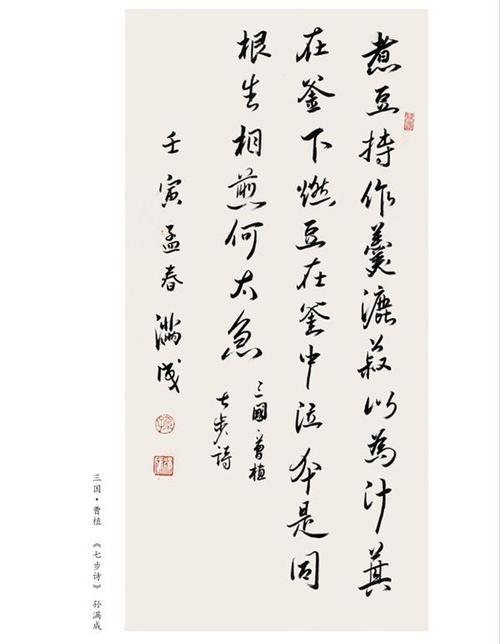 煮豆持作羹漉菽以为汁萁
在釜下燃豆在釜中泣本是同
根生相煎何太急
三國·曹植
七步诗
壬寅孟春满成
三国·曹植 《七步诗》 孙满成